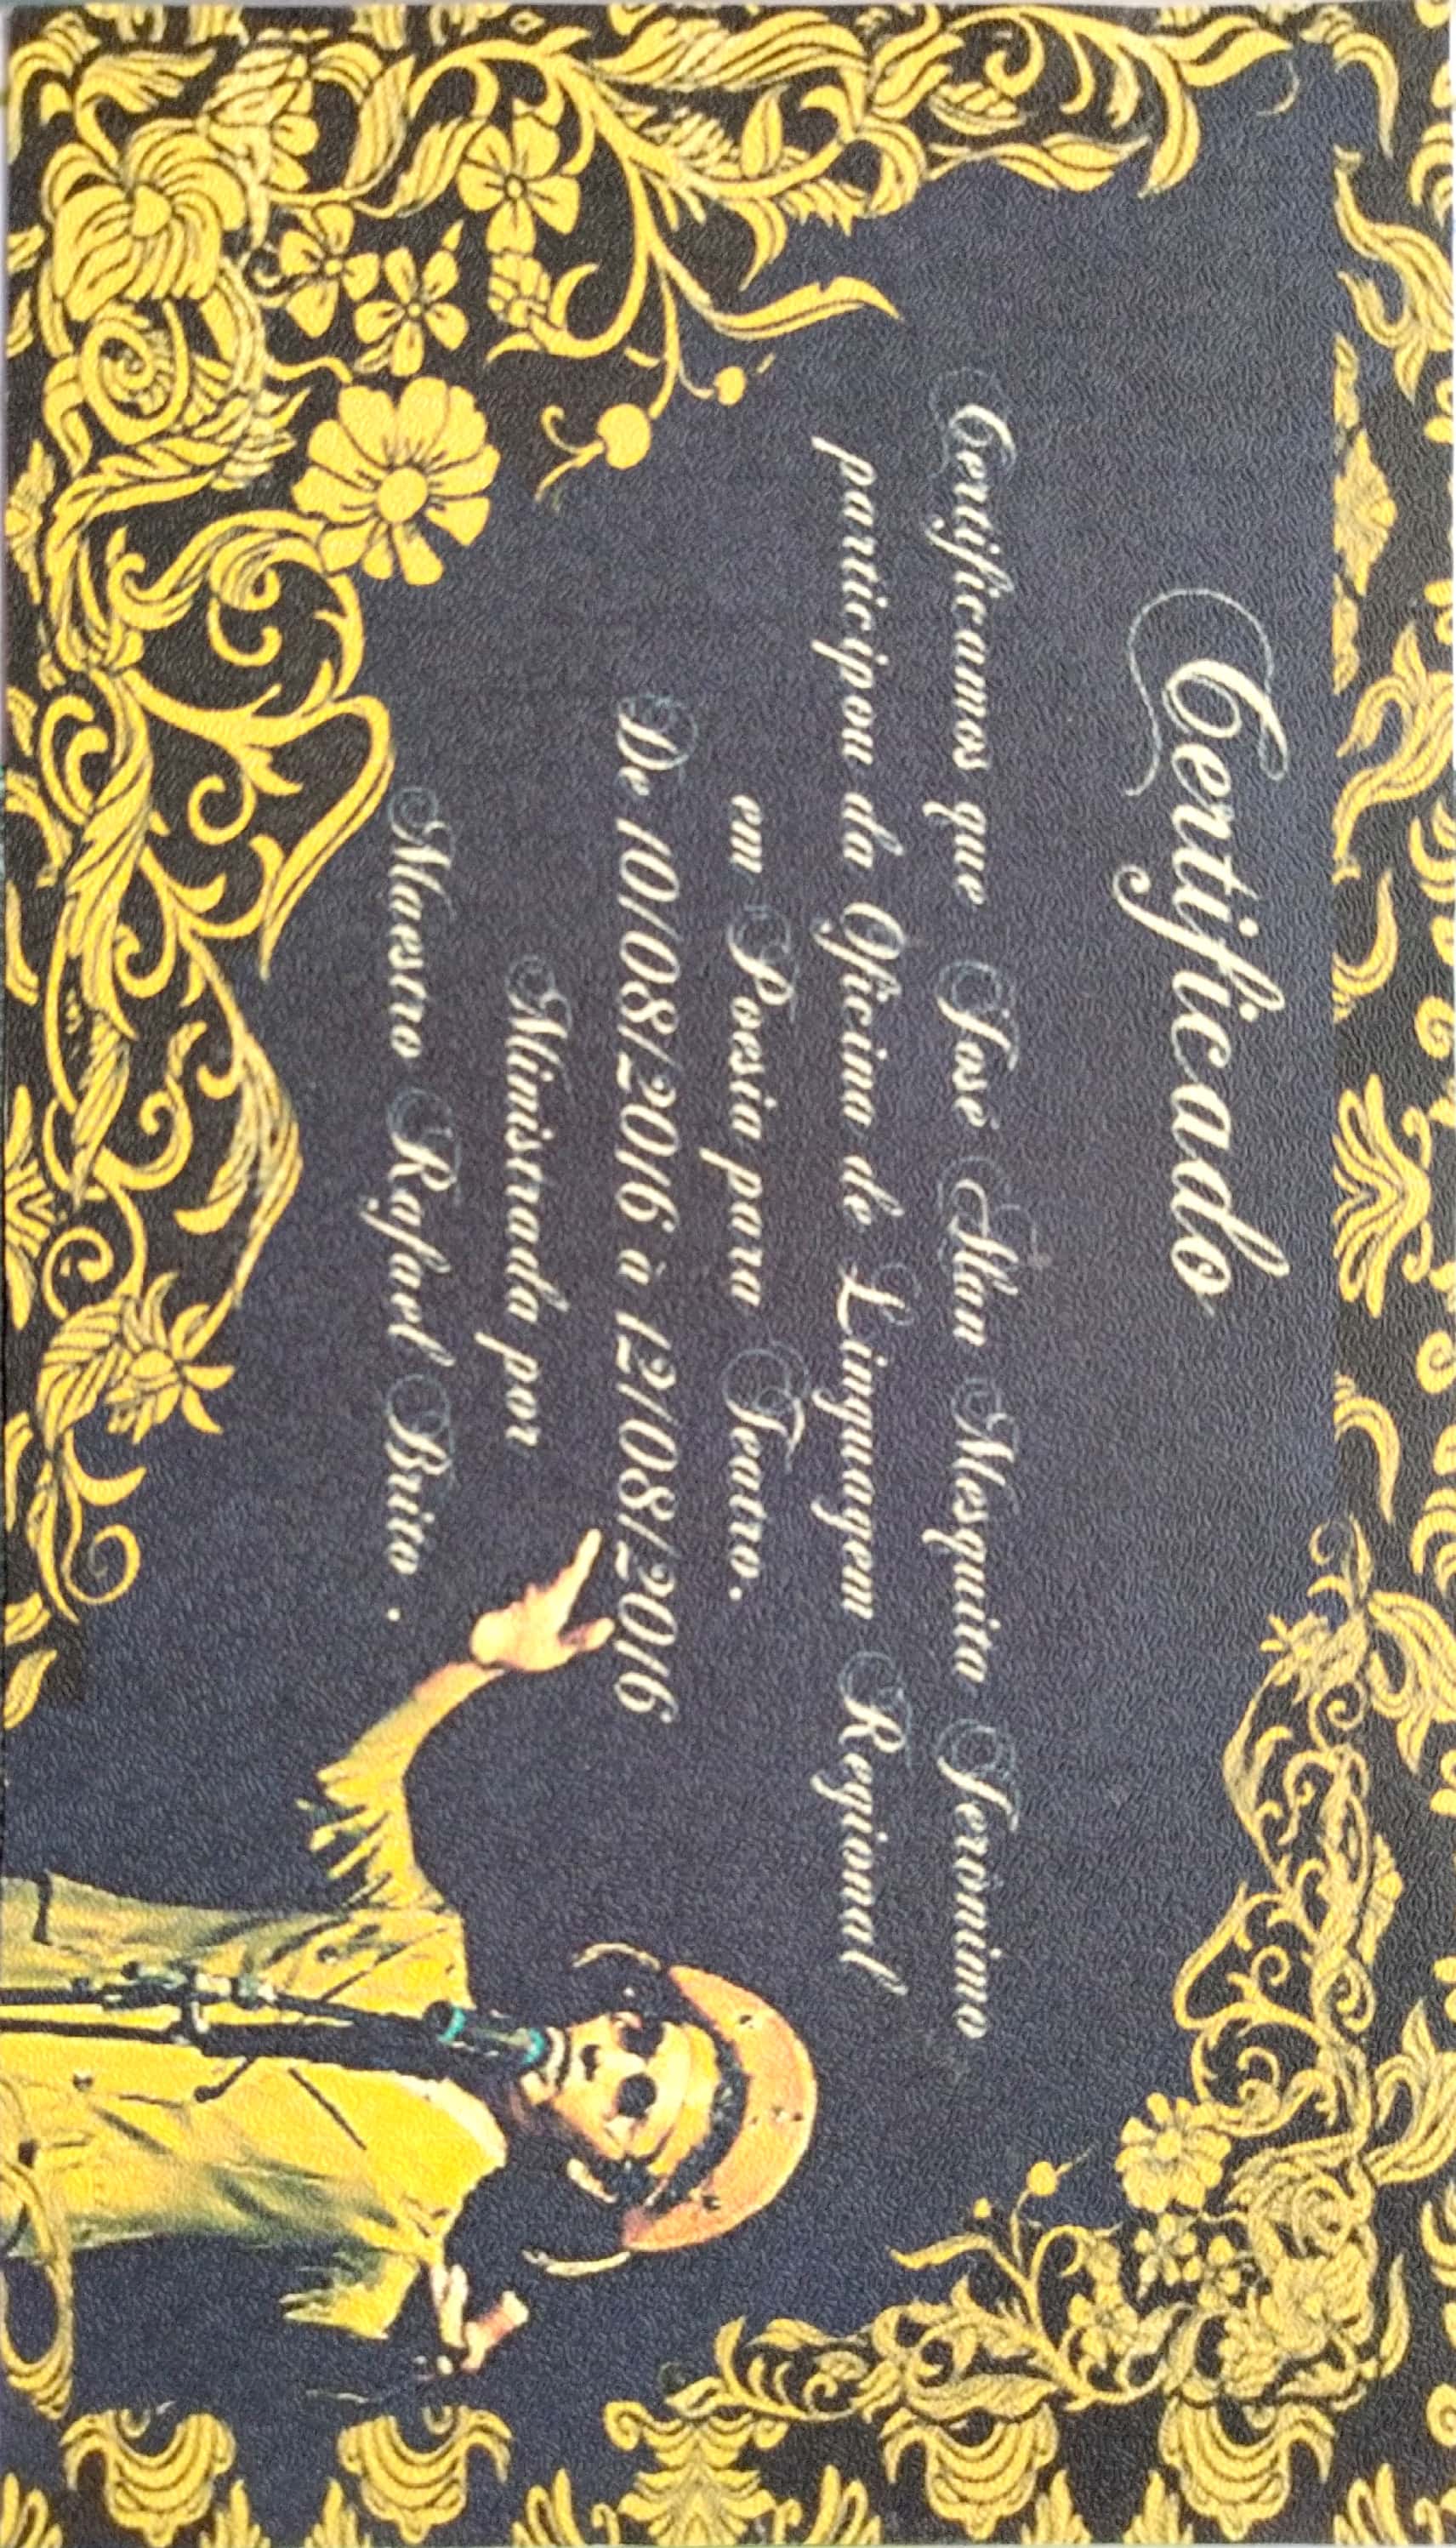 Certificado
Certificamos que Jose Alan Mesquita Jeronimo
participou da Oficina de Linguagem Regional
em Poesia para Teatro.
De 10/08/2016 à 12/08/2016
Ministrada por
Maestro Rafael Brito .